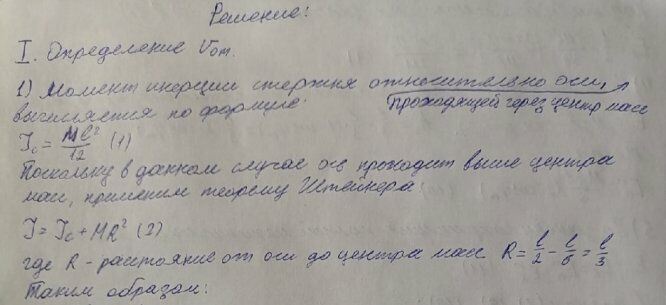 Решение:
I. Определение Vот.
1) Момент инерции стержня относительно оси,
проходящей через центр масс
вычисляется по формуле:
Jc = Ml²/12 (1)
Поскольку в данном случае ось проходит выше центра
масс, применим теорему Штейнера
J = Jc + MR² (2)
где R - расстояние от оси до центра масс R = l/2 - l/6 = l/3
Таким образом: